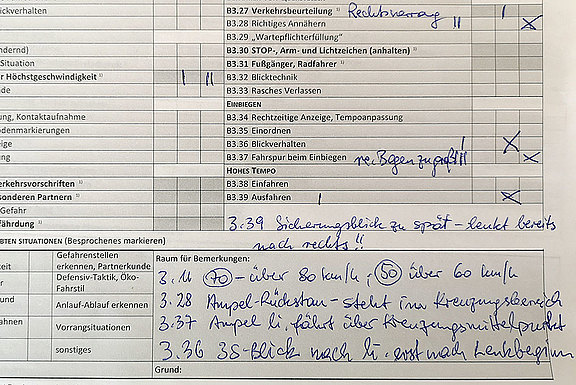 ickverhalten
B3.27 Verkehrsbeurteilung ¹⁾ Rechtsvorrang
B3.28 Richtiges Annähern
B3.29 „Wartepflichterfüllung“
ndernd)
B3.30 STOP-, Arm- und Lichtzeichen (anhalten) ³⁾
Situation
B3.31 Fußgänger, Radfahrer ¹⁾
r Höchstgeschwindigkeit ¹⁾
B3.32 Blicktechnik
de
B3.33 Rasches Verlassen
EINBIEGEN
ng, Kontaktaufnahme
B3.34 Rechtzeitige Anzeige, Tempoanpassung
odenmarkierungen
B3.35 Einordnen
eige
B3.36 Blickverhalten
ng
B3.37 Fahrspur beim Einbiegen re. Bogen zu groß!!
HOHES TEMPO
erkehrsvorschriften ¹⁾
B3.38 Einfahren
sonderen Partnern ¹⁾
B3.39 Ausfahren
Gefahr
fährdung ³⁾
3.39 Sicherungsblick zu spät – lenkt bereits
nach rechts!!
BTEN SITUATIONEN (Besprochenes markieren)
Gefahrenstellen
erkennen, Partnerkunde
keit
Raum für Bemerkungen:
3.11 70 – über 80 km/h, 50 über 60 km/h
r
Defensiv-Taktik, Öko-
Fahrstil
und
Anlauf-Ablauf erkennen
3.28 Ampel-Rückstau – steht im Kreuzungsbereich
ahnen
Vorrangsituationen
3.37 Ampel li. fährt über Kreuzungsmittelpunkt
sonstiges
3.36 3S-Blick nach li. erst nach Lenkbeginn
Grund: